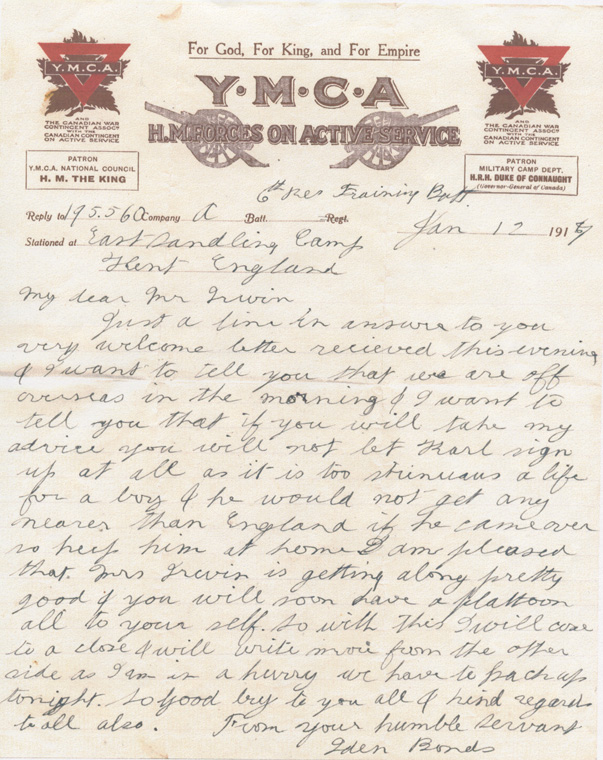 For God, For King, and For Empire
Y.M.C.A.
Y·M·C·A
Y.M.C.A.
AND
THE CANADIAN WAR
CONTINGENT ASSOCn
WITH THE
CANADIAN CONTINGENT
ON ACTIVE SERVICE
H.M. FORCES ON ACTIVE SERVICE
AND
THE CANADIAN WAR
CONTINGENT ASSOCn
WITH THE
CANADIAN CONTINGENT
ON ACTIVE SERVICE
PATRON
Y.M.C.A. NATIONAL COUNCIL
H. M. THE KING
PATRON
MILITARY CAMP DEPT.
H.R.H. DUKE OF CONNAUGHT
(Governor-General of Canada)
6th Res Training Batt
Reply to 195.560 Company A Batt. Regt. Jan 12 1917
Stationed at East Sandling Camp
Kent England
My dear Mr Irwin
Just a line in ansure to you
very welcome letter recieved this evening
& I want to tell you that we are off
overseas in the morning & I want to
tell you that if you will take my
advice you will not let Karl sign
up at all as it is too strinuaus a life
for a boy & he would not get any
nearer than England if he came over
so keep him at home I am pleased
that Mrs Irwin is getting along pretty
good & you will soon have a plattoon
all to your self. so with this I will cose
to a close & will write more from the other
side as I am in a hurry we have to pack up
tonight. so good by to you all & kind regards
to all also. From your humble servant
Iden Bonds